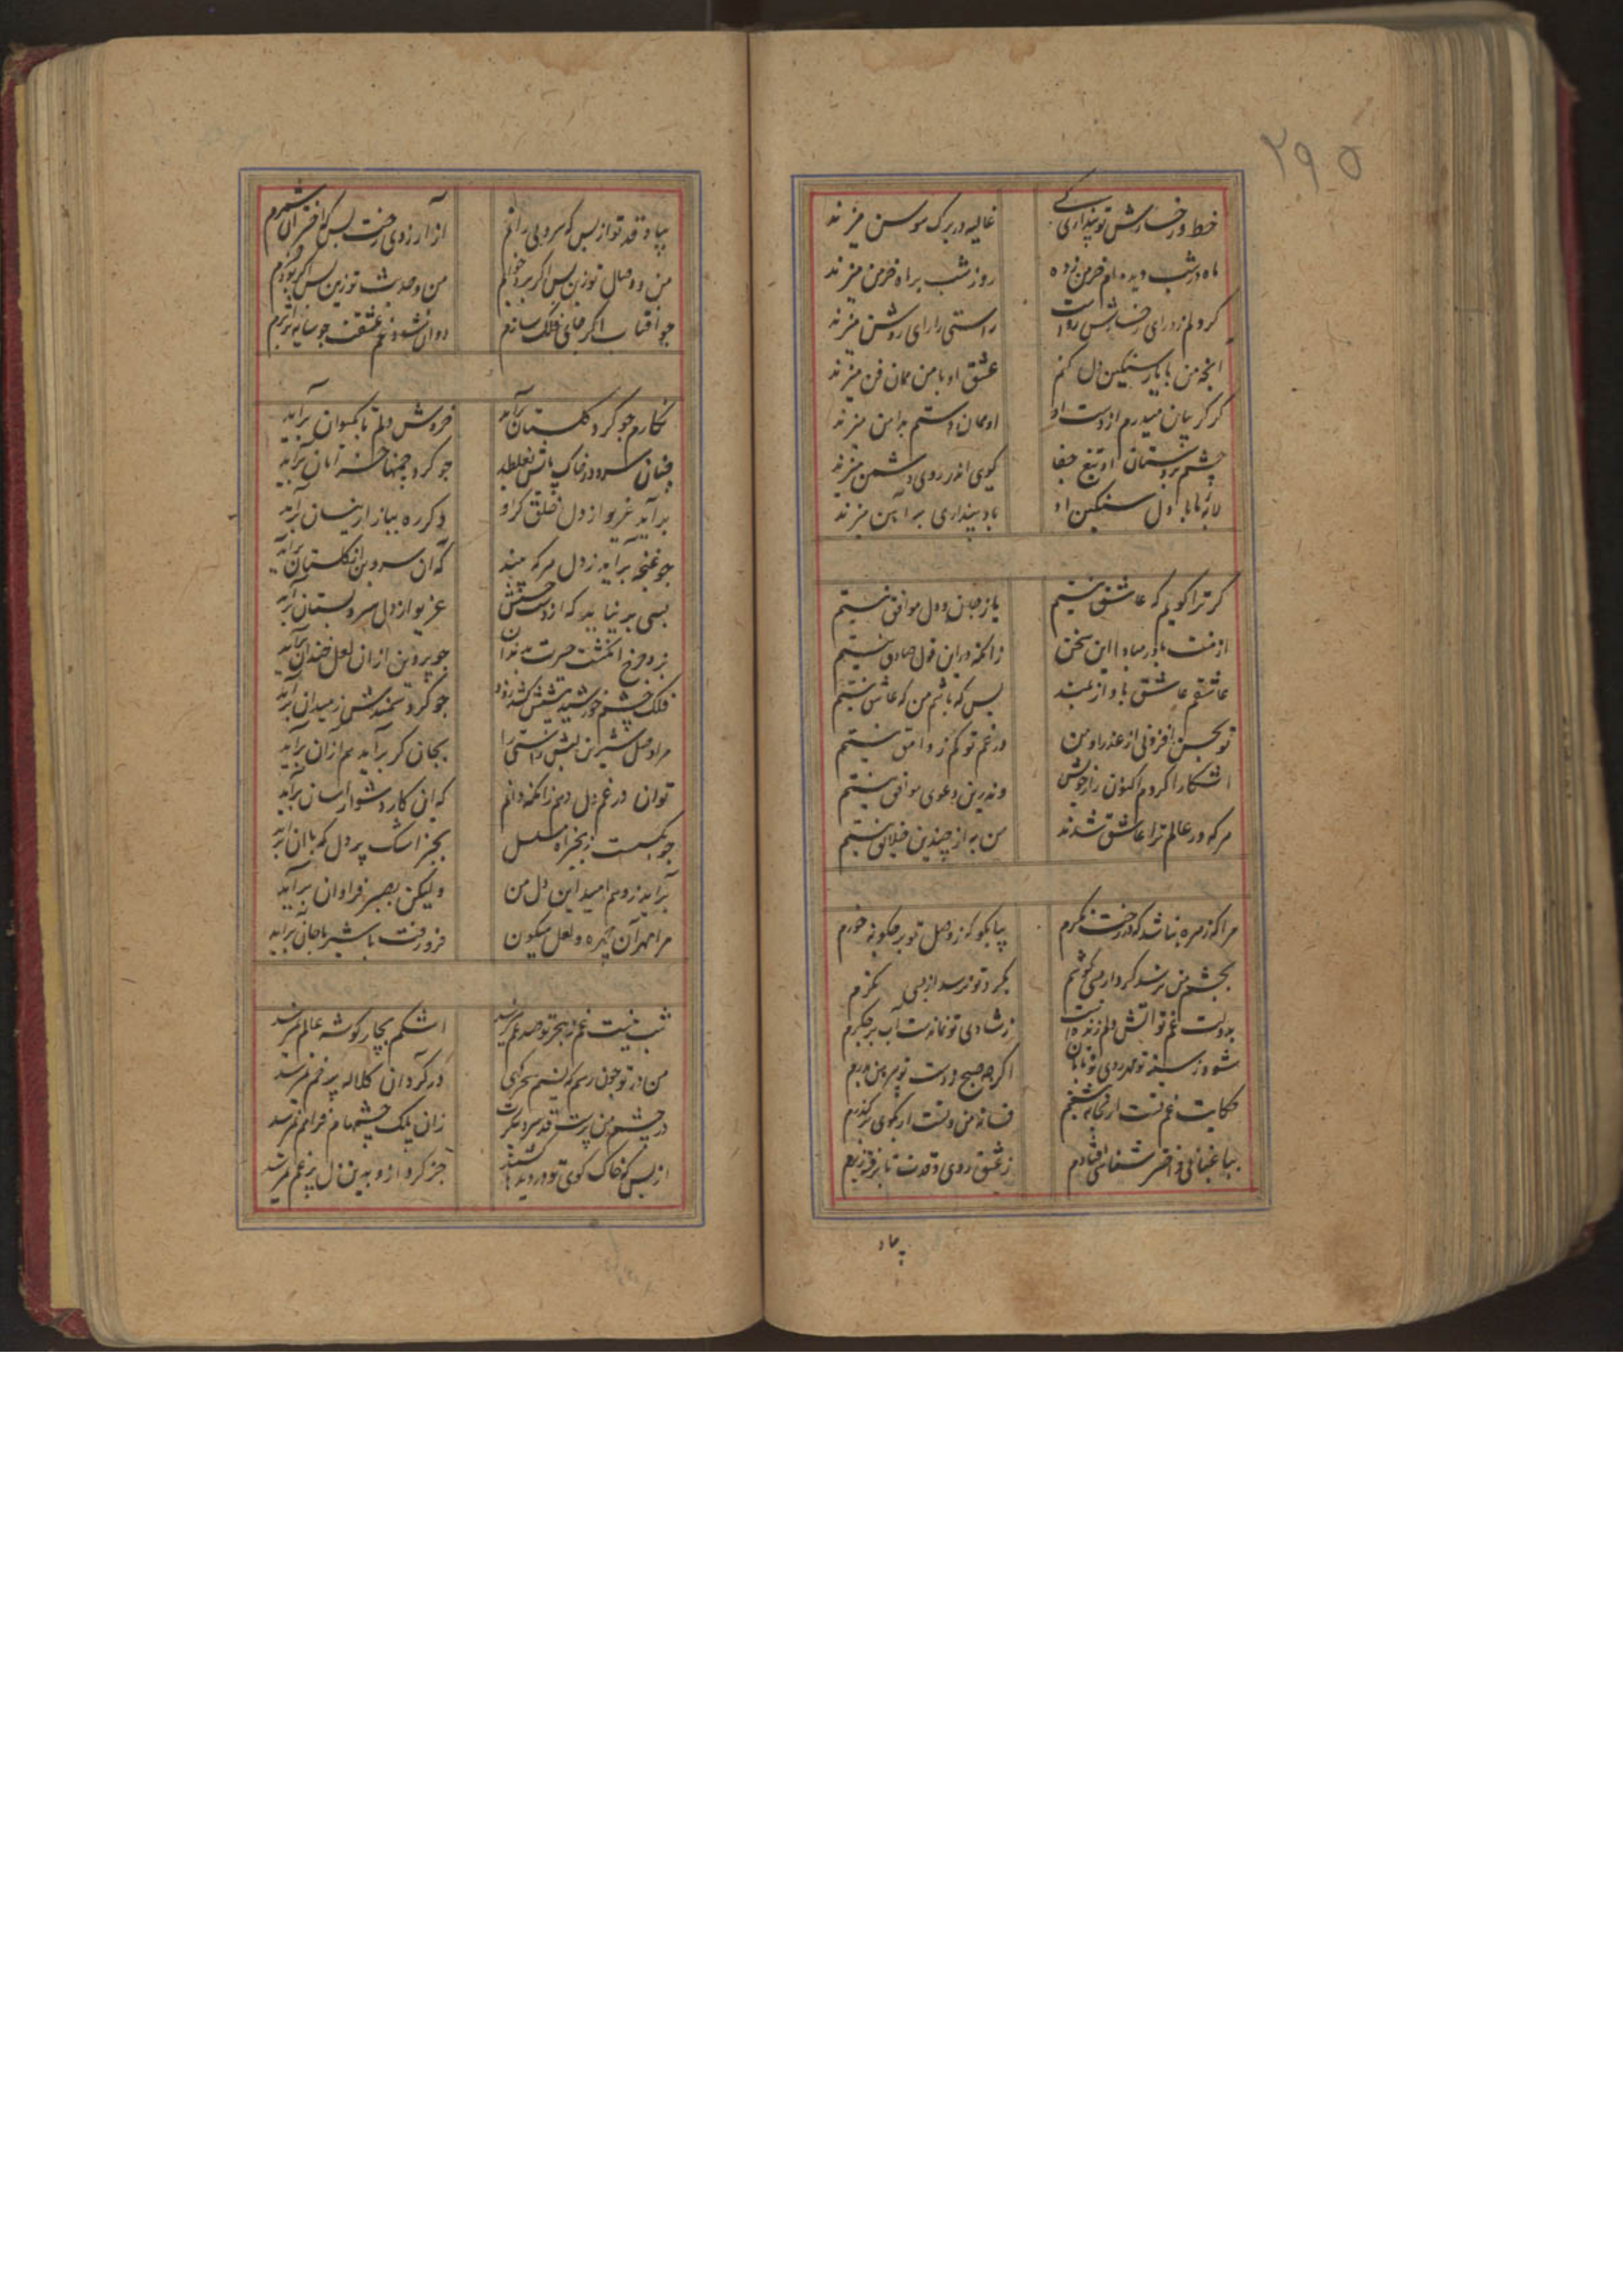 ۲۹۵
خط و رخسارش تو پنداری که
غالیه در برک سوسن میزند
ماه در شب دیده‌ام خرمن زده
روز شب بر ماه خرمن میزند
کر دلم زد رای رخسارش رواست
راستی را رای روشن میزند
انچه من با یار سنکین دل کنم
عشق او با من همان فن میزند
کر کریبان میدرم از دست او
او همان دستم بدامن میزند
چشم بردستان او تیغ جفا
کویی اندر روی دشمن میزند
لابه ما با دل سنکین او
باد پنداری بر آهن میزند
کر ترا کویم که عاشق نیستم
با زبان و دل موافق نیستم
از منت باور مبادا این سخن
زانکه در این قول صادق نیستم
عاشقم عاشق باواز بلند
پس که باشم من که عاشق نیستم
تو بحسن افزونی از عذرا و من
در غم تو کم ز وامق نیستم
اشکارا کردم اکنون راز خویش
وندرین دعوی منافق نیستم
هرکه در عالم ترا عاشق شدند
من به از چندین خلایق نیستم
مرا که زهره نباشد که در رخت نکرم
بیا بکو که ز وصل تو بر چکونه خورم
بچشم من نرسد کرد ار همی کوشم
بکرد تو نرسد از پی نکرم
بدولت غم تو اتش دلم زنده است
ز شادی تو نماندست آب بر جکرم
شود ز سینه تو مهر روی تو تابان
اکر چو صبح ز دست تو پیرهن بدرم
حکایت غم تست ار فسانه شنوم
فسانه من و تست ار بکوی برکذرم
بیا عنانی و اختر شناس افتادم
ز عشق روی و قدت تا برفت
بیاد
بیاد قد تو از بس که سرو می رانم
از آرزوی رخت بس که اختران شمرم
من و وصال تو زین پس اکر بود خوابم
من و حدیث تو زین پس اکر بود
چو آفتاب اکر جای بر فلک سازم
روان شود غم عشقت چو سایه بر اثرم
نکارم چو کرد کلستان برآید
خروش دلم تا بکیوان برآید
چنان سرو در خاک پایش بغلطد
چو کرد چمنها خرامان برآید
برآید غریو از دل خلق کر او
دکر ره ببازار ازینسان برآید
چو غنچه برآید ز دل هرکه بیند
که آن سروبن از کلستان برآید
بسی برنیاید که از دست حسنش
غریو از دل سرو بستان برآید
برد چرخ انکشت حسرت بدندان
چو پروین از ان لعل خندان برآید
فلک چشم خورشید پیشش کشد زود
چو کرد سمندش ز میدان برآید
مراد دل شیرین لبش راستی را
بجان کر برآید هم ارزان برآید
توان در غم دل دهم زانکه دانم
که این کار دشوار آسان برآید
چو بکسست زنجیر آه مسلسل
بجز اشک پر دل که با ان برآید
برآید ز وی هم امید این دل من
ولیکن بصبر فراوان برآید
مرا مهر آن چهره و لعل میکون
فرو رفت با شیر با جان برآید
شب نیست غم ز هجر تو صد غم نمیرسد
اشکم بچار کوشه عالم نمیرسد
من در تو چون رسم که نسیم سحر کهی
در کرد آن کلاله پر خم نمیرسد
در چشم من پرست قد سرو پیکرت
زان پلک چشمهام فراهم نمیرسد
از بس که خاک کوی تو در دیدها کشند
جز کرد ازو بدین دل پر غم نمیرسد